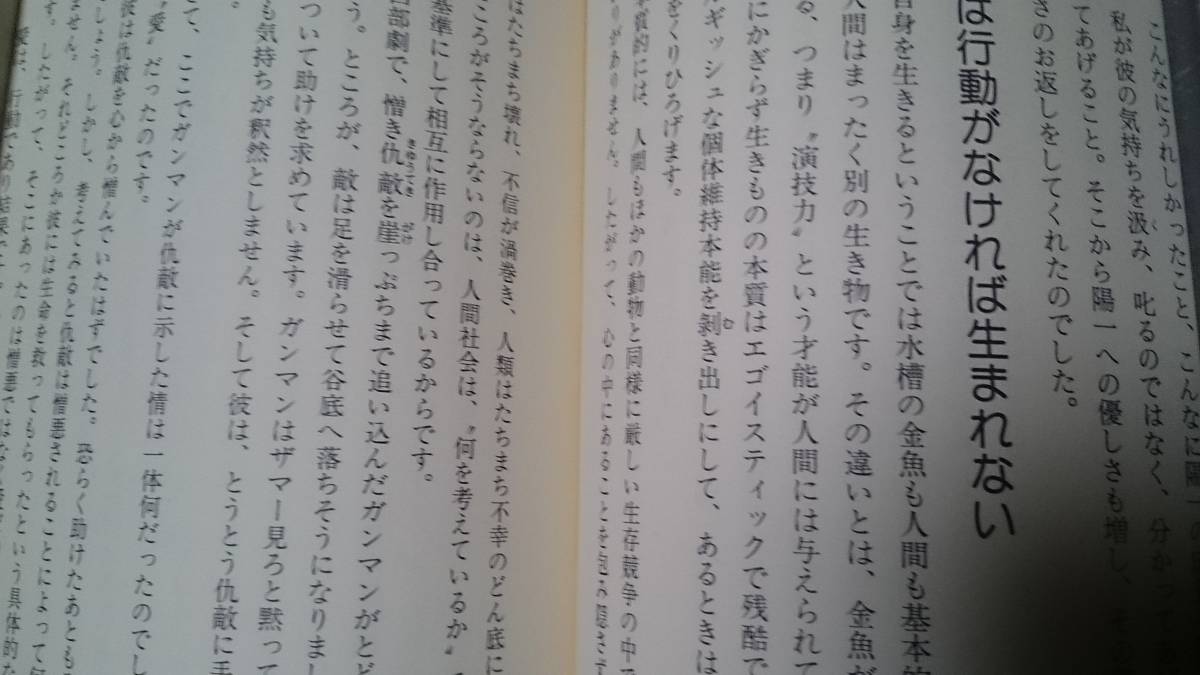 こんなにうれしかったこと、こんなに陽一
私が彼の気持ちを汲み、叱るのではなく、分かって
てあげること。そこから陽一への優しさも増し、その
さのお返しをしてくれたのでした。
は行動がなければ生まれない
自身を生きるということでは水槽の金魚も人間も基本的
人間はまったく別の生き物です。その違いとは、金魚が
る、つまり〝演技力〟という才能が人間には与えられて
にかぎらず生きものの本質はエゴイスティックで残酷で
ルギッシュな個体維持本能を剥き出しにして、あるときは
をくりひろげます。
本質的には、人間もほかの動物と同様に厳しい生存競争の中で
りがありません。したがって、心の中にあることを包み隠さず
はたちまち壊れ、不信が渦巻き、人類はたちまち不幸のどん底に
ころがそうならないのは、人間社会は、〝何を考えているか〟
基準にして相互に作用し合っているからです。
西部劇で、憎き仇敵を崖っぷちまで追い込んだガンマンがとど
う。ところが、敵は足を滑らせて谷底へ落ちそうになりまし
ついて助けを求めています。ガンマンはザマー見ろと黙って
も気持ちが釈然としません。そして彼は、とうとう仇敵に手
て、ここでガンマンが仇敵に示した情は一体何だったのでし
〝愛〟だったのです。
彼は仇敵を心から憎んでいたはずでした。恐らく助けたあとも
しょう。しかし、考えてみると仇敵は憎悪されることによって
ません。それどころか彼には生命を救ってもらったという具体的な
す。したがって、そこにあったのは憎悪ではなく
愛は、行動であり結果です。